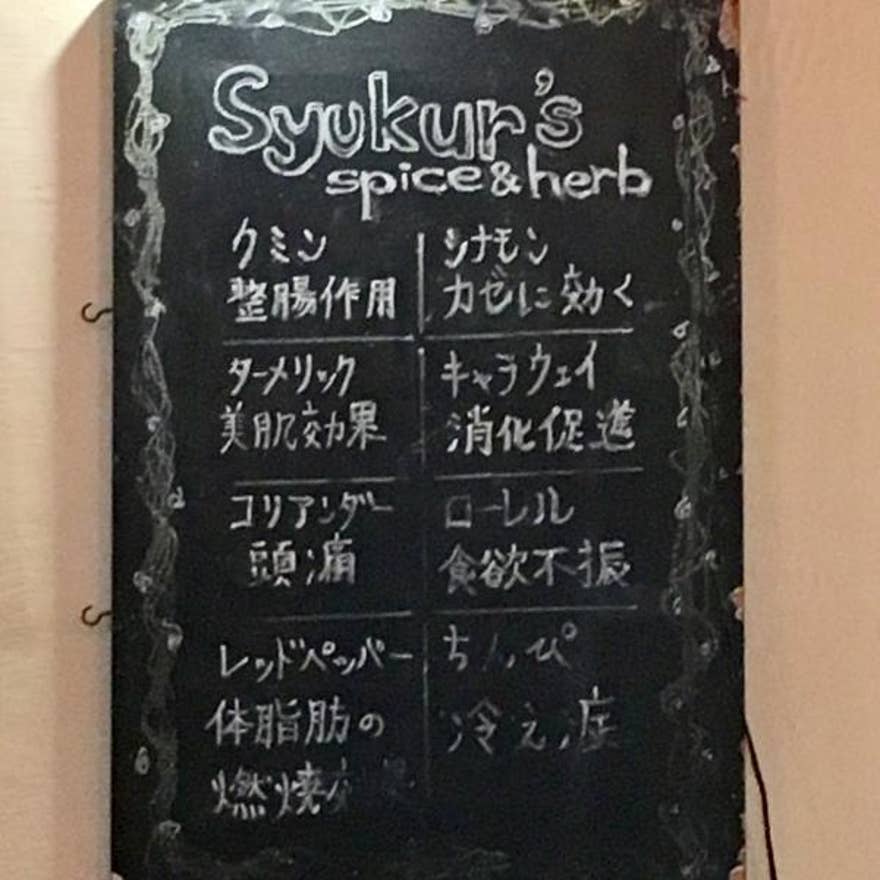 Syukur's
spice&herb
クミン
整腸作用
シナモン
カゼに効く
ターメリック
美肌効果
キャラウェイ
消化促進
コリアンダー
頭痛
ローレル
食欲不振
レッドペッパー
体脂肪の
燃焼効果
ちんぴ
冷え症